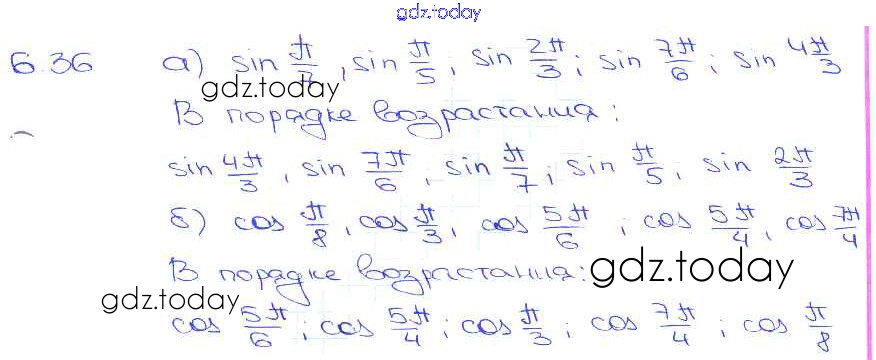 gdz.today
6.36 а) sin π/7, sin π/5; sin 2π/3; sin 7π/6; sin 4π/3
gdz.today
В порядке возрастания:
sin 4π/3, sin 7π/6, sin π/7; sin π/5; sin 2π/3
б) cos π/8, cos π/3, cos 5π/6; cos 5π/4, cos 7π/4
В порядке возрастания: gdz.today
gdz.today
cos 5π/6; cos 5π/4; cos π/3; cos 7π/4; cos π/8